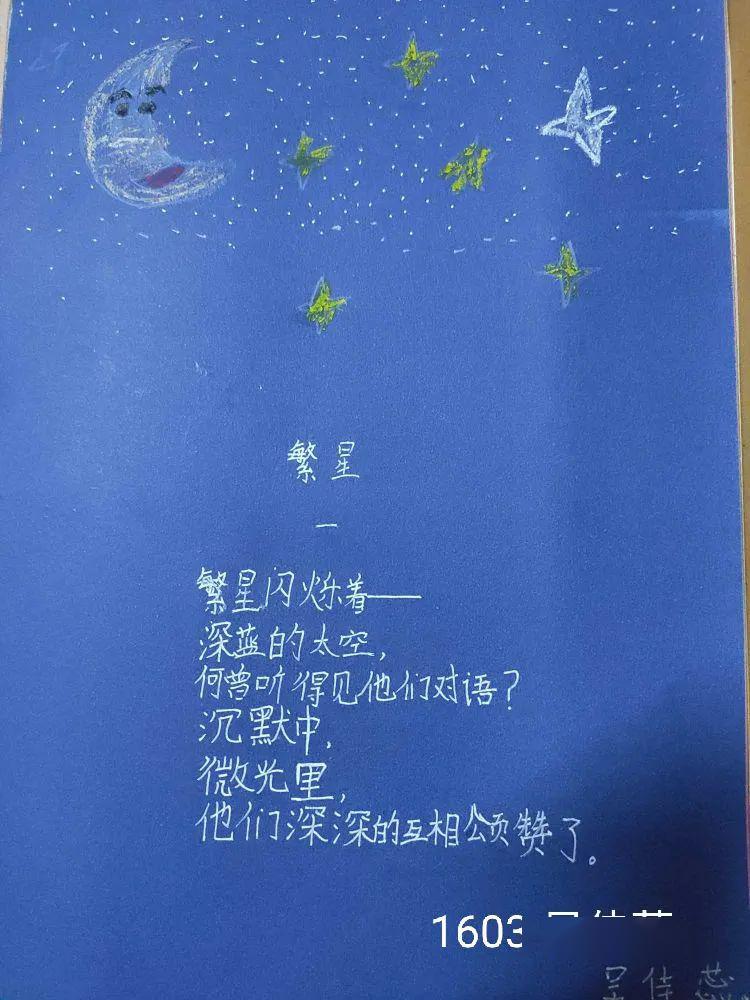 繁星
一
繁星闪烁着——
深蓝的太空，
何曾听得见他们对语？
沉默中，
微光里，
他们深深的互相颂赞了。
1603
吴佳蕊